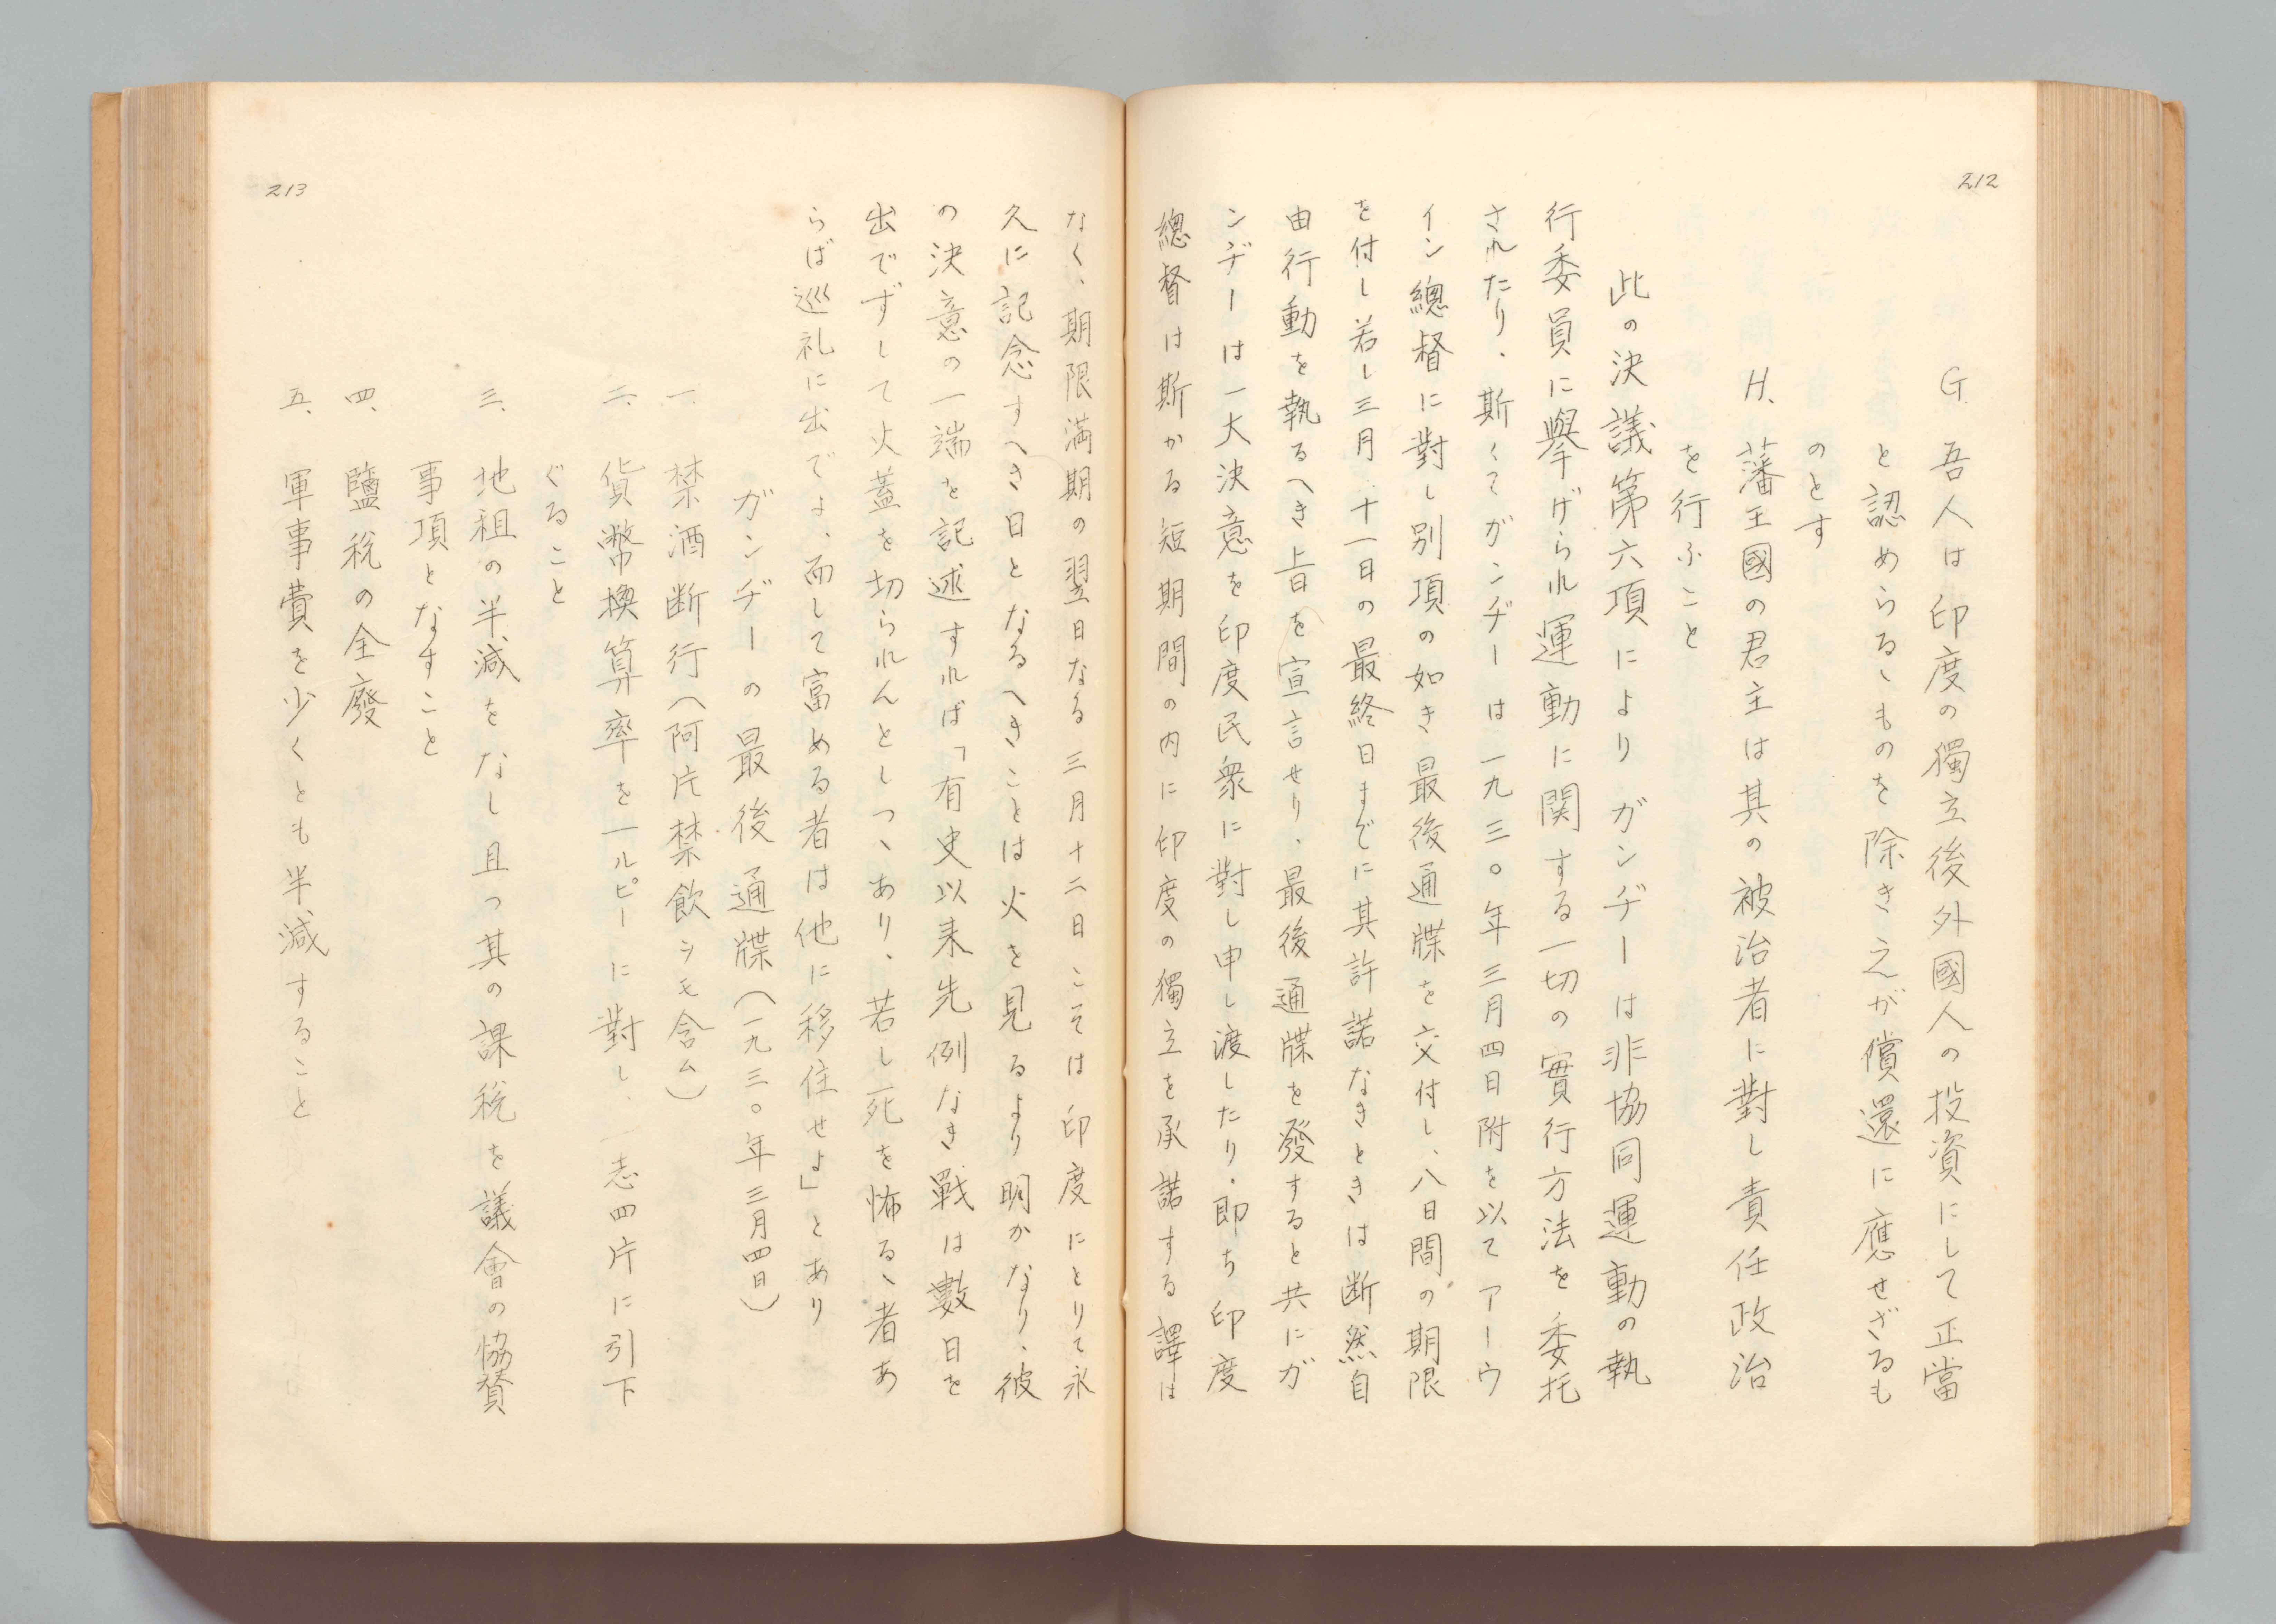 212
G 吾人は印度の獨立後外國人の投資にして正當
と認めらるゝものを除き之が償還に應せざるも
のとす
H、藩王國の君主は其の被治者に對し責任政治
を行ふこと
此の決議第六項によりガンヂーは非協同運動の執
行委員に擧げられ運動に関する一切の實行方法を委托
されたり、斯くてガンヂーは一九三〇年三月四日附を以てアーウ
イン總督に對し別項の如き最後通牒を交付し、八日間の期限
を付し若し三月十一日の最終日までに其許諾なきときは断然自
由行動を執るへき旨を宣言せり、最後通牒を發すると共にガ
ンヂーは一大決意を印度民衆に對し申し渡したり、即ち印度
總督は斯かる短期間の内に印度の獨立を承諾する譯は
213
なく、期限満期の翌日なる三月十二日こそは印度にとりて永
久に記念すへき日となるへきことは火を見るより明かなり、彼
の決意の一端を記述すれば「有史以来先例なき戰は數日を
出でずして火蓋を切られんとしつゝあり、若し死を怖るゝ者あ
らば巡礼に出でよ、而して富める者は他に移住せよ」とあり
ガンヂーの最後通牒(一九三〇年三月四日)
一、禁酒断行(阿片禁飲ヲモ含ム)
二、貨幣換算率を一ルピーに對し、一志四片に引下
ぐること
三、地租の半減をなし且つ其の課税を議會の協賛
事項となすこと
四、鹽税の全廢
五、軍事費を少くとも半減すること